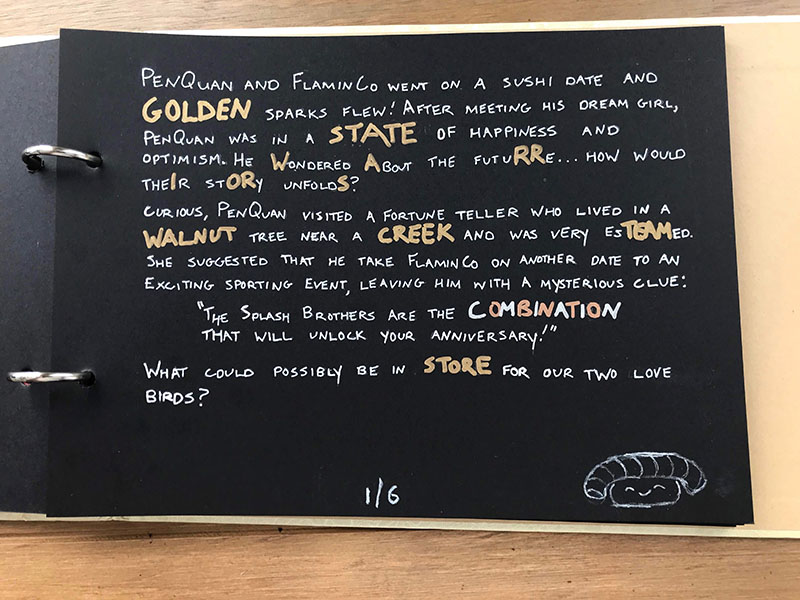 PenQuan and FlaminCo went on a sushi date and
GOLDEN sparks flew! After meeting his dream girl,
PenQuan was in a STATE of happiness and
optimism. He Wondered About the futuRRe... how would
theIr stORy unfoldS?
Curious, PenQuan visited a fortune teller who lived in a
WALNUT tree near a CREEK and was very esTEAMed.
She suggested that he take FlaminCo on another date to an
exciting sporting event, leaving him with a mysterious clue:
"The Splash Brothers are the COMBINATION
that will unlock your anniversary!"
What could possibly be in STORE for our two love
birds?
1/6